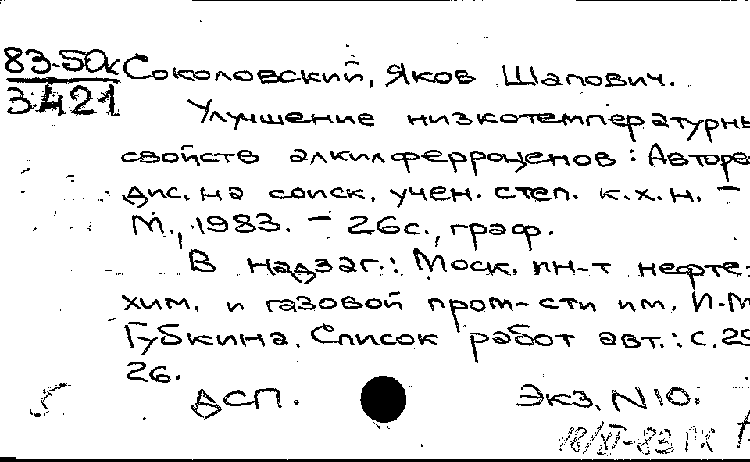 83-50к
3421
Соколовский, Яков Шапович.
Улучшение низкотемпературны
свойств алкилферроценов: Авторе
дис. на соиск. учен. степ. к.х.н. –
М., 1983. – 26 с., граф.
В надзаг.: Моск. ин-т нефте-
хим. и газовой пром-сти им. И.М
Губкина. Список работ авт.: с. 25
26.
ДСП. Экз. N10.
18/XI-83